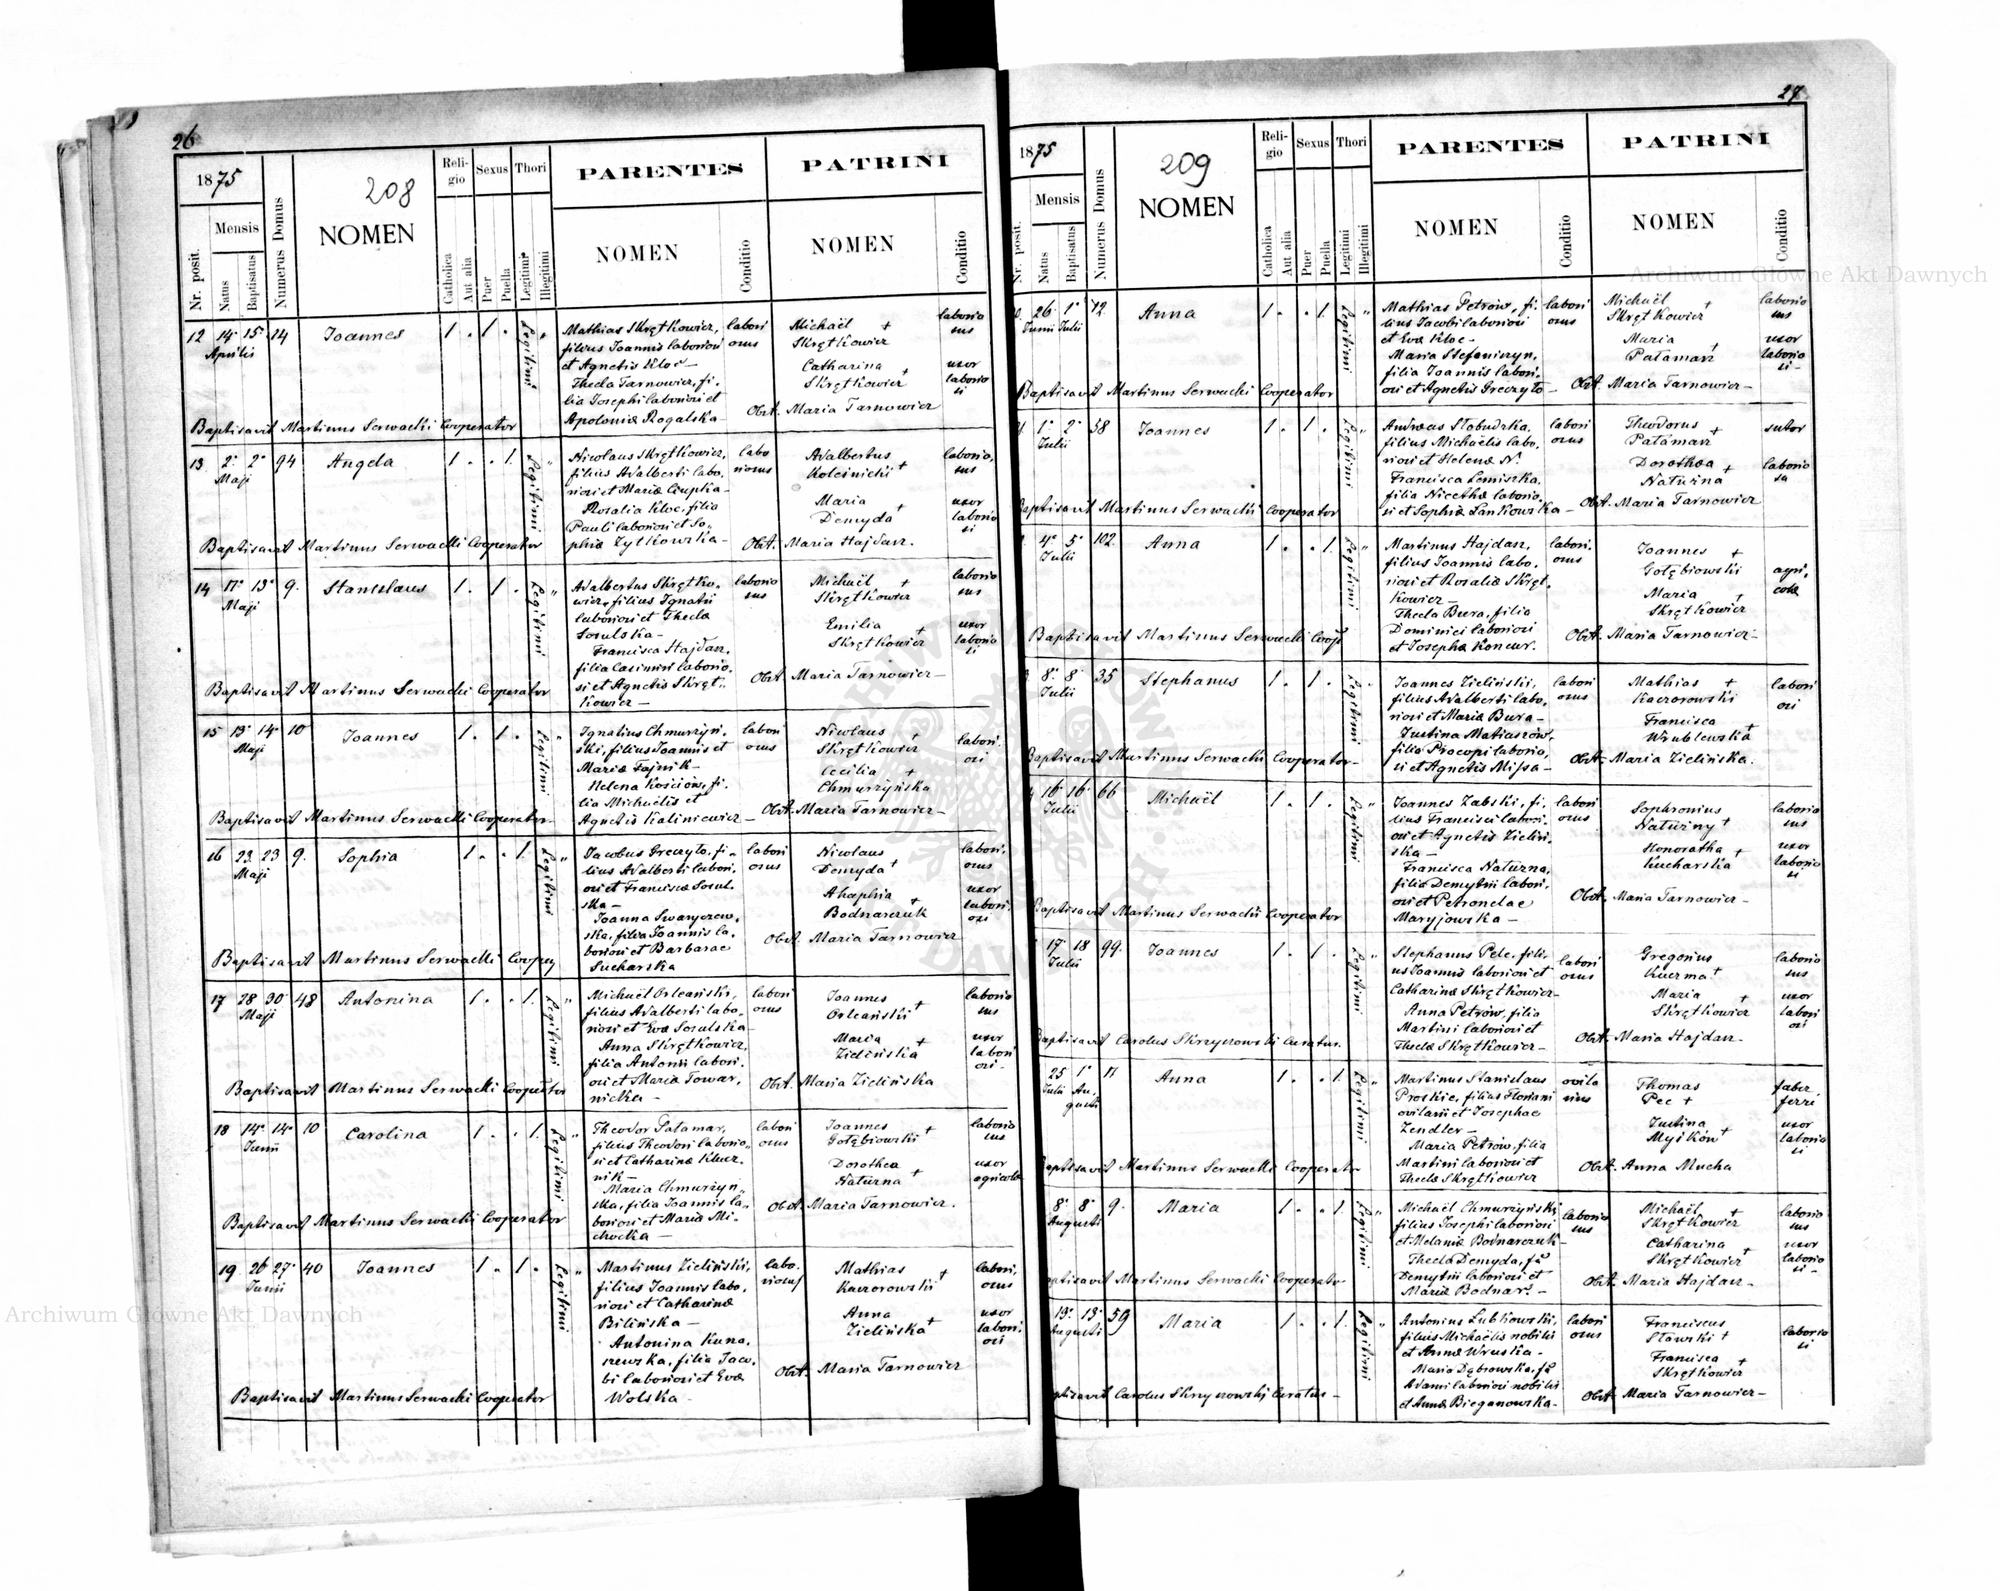 26
1875
208
Mensis
Nr. posit.
Natus
Baptisatus
Numerus Domus
NOMEN
Religio
Sexus
Thori
Catholica
Aut alia
Puer
Puella
Legitimi
Illegitimi
PARENTES
PATRINI
NOMEN
Conditio
NOMEN
Conditio
12 14 15 14 Joannes 1 . 1 . Legitimi "
Aprilis
Mathias Skrętkowicz,
filius Joannis laboriosi
et Agnetis Kloc —
Thecla Tarnowicz, fi-
lia Josephi laboriosi et
Apoloniæ Rogalska
labori
osus
Michaël +
Skrętkowicz
Catharina +
Skrętkowicz
laborio
sus
uxor
laborio
si
Obst. Maria Tarnowicz
Baptisavit Martinus Serwacki Cooperator
13 2 2 94 Angela 1 . . 1. Legitimi "
Maji
Nicolaus Skrętkowicz,
filius Adalberti labo-
riosi et Mariæ Czupka —
Rosalia Kloc, filia
Pauli laboriosi et So-
phiæ Zytkowska —
labo
riosus
Adalbertus
Koleśnicki +
Maria
Demyda +
laborio,
sus
uxor
laborio
si
Obst. Maria Hajdasz.
Baptisavit Martinus Serwacki Cooperator
14 17 19 9. Stanislaus 1. 1 . Legitimi "
Maji
Adalbertus Skrętko-
wicz, filius Ignatii
laboriosi et Thecla
Sosulska —
Francisca Hajdasz,
filia Casimiri laborio-
si et Agnetis Skręt-
kowicz —
laborio
sus
Michaël +
Skrętkowicz
Emilia +
Skrętkowicz
laborio
sus
uxor
laborio
si
Obst. Maria Tarnowicz —
Baptisavit Martinus Serwacki Cooperator
15 13 14 10 Joannes 1 . 1 . Legitimi "
Maji
Ignatius Chmurzyń-
ski, filius Joannis et
Mariæ Fajnik —
Helena Kościów, fi-
lia Michaëlis et
Agnetis Kaliniewicz —
labori
osus
Nicolaus +
Skrętkowicz
Cecilia +
Chmurzyńska
labori.
osi
Obst. Maria Tarnowicz —
Baptisavit Martinus Serwacki Cooperator
16 23 23 9. Sophia 1 . . 1. Legitimi "
Maji
Jacobus Greczyło, fi-
lius Adalberti labori-
osi et Francisca Sosul-
ska —
Joanna Swaryczew-
ska, filia Joannis la-
boriosi et Barbarae
Sucharska
labori
osus
Nicolaus
Demyda +
Ahaphia +
Bodnarczuk
labori.
osus
uxor
labori.
osi
Obst. Maria Tarnowicz
Baptisavit Martinus Serwacki Cooper
17 28 30 48 Antonina 1 . . 1. Legitimi "
Maji
Michaël Orleański,
filius Adalberti labo-
riosi et Eva Sosulska
Anna Skrętkowicz,
filia Antonii labori-
osi et Mariæ Towar-
nicka —
labori
osus
Joannes +
Orleański
Maria +
Zielińska
laborio
sus
uxor
labori
osi —
Obst. Maria Zielińska
Baptisavit Martinus Serwacki Cooperator
18 14 14 10 Carolina 1 . . 1. Legitimi "
Junii
Theodor Patamar,
filius Theodori laborio-
si et Catharinæ Klucz-
nik —
Maria Chmurzyń-
ska, filia Joannis la-
boriosi et Mariæ Mi-
chocka —
labori
osus
Joannes +
Gołębiowski
Dorothea +
Naturna
laborio
sus
uxor
agricolæ
Obst. Maria Tarnowicz.
Baptisavit Martinus Serwacki Cooperator
19. 26 27 40 Joannes 1 . 1 . Legitimi "
Junii
Martinus Zieliński,
filius Joannis labo-
riosi et Catharinæ
Bilińska —
Antonina Kuna-
szewska, filia Jaco-
bi laboriosi et Evæ
Wolska —
labo-
riosus
Mathias +
Kaczorowski
Anna +
Zielińska
labori,
osus
uxor
labori,
osi
Obst. Maria Tarnowicz
Baptisavit Martinus Serwacki Cooperator
27
1875
209
Mensis
Nr. posit.
Natus
Baptisatus
Numerus Domus
NOMEN
Religio
Sexus
Thori
Catholica
Aut alia
Puer
Puella
Legitimi
Illegitimi
PARENTES
PATRINI
NOMEN
Conditio
NOMEN
Conditio
26 1 12 Anna 1 . . 1. Legitimi "
Junii Julii
Mathias Petrów, fi-
lius Jacobi laboriosi
et Evæ Kloc —
Maria Stefaniszyn,
filia Joannis labori-
osi et Agnetis Greczyło —
labori
osus
Michaël +
Skrętkowicz
Maria +
Patamarz
laborio
sus
uxor
laborio
si —
Obst. Maria Tarnowicz —
Baptisavit Martinus Serwacki Cooperator
1 2 38 Joannes 1 . 1 . Legitimi "
Julii
Andreas Stobudzka,
filius Michaëlis labo-
riosi et Helenæ N.
Francisca Lemiszka,
filia Nicethæ laborio-
si et Sophiæ Lankowska —
labori
osus
Theodorus +
Patamarz
Dorothea +
Naturina
sutor
laborio
sa
Obst. Maria Tarnowicz
Baptisavit Martinus Serwacki Cooperator
4 5 102. Anna 1 . . 1. Legitimi "
Julii
Martinus Hajdasz,
filius Joannis labo-
riosi et Rosaliæ Skręt-
kowicz —
Thecla Bura, filia
Dominici laboriosi
et Josephæ Koncur.
labori.
osus
Joannes +
Gołębiowski
Maria +
Skrętkowicz
agri,
colæ
Obst. Maria Tarnowicz —
Baptisavit Martinus Serwacki Coop
8 8 35 Stephanus 1 . 1 . Legitimi "
Julii
Joannes Zieliński,
filius Adalberti labo-
riosi et Mariæ Bura —
Justina Matiaszów,
filia Procopi laborio-
si et Agnetis Missa —
labori
osus
Mathias +
Kaczorowski
Francisca +
Wrublewska
labori
osi
Obst. Maria Zielińska.
Baptisavit Martinus Serwacki Cooperator —
16 16 66 Michaël 1 . 1 . Legitimi "
Julii
Joannes Zabski, fi-
lius Francisci labori-
osi et Agnetis Zieliń-
ska —
Francisca Naturna,
filia Demytrii labori-
osi et Petronelae
Maryjowska —
labori
osus
Sophronius
Naturny +
Honoratha +
Kucharska
laborio
sus
uxor
laborio
si
Obst. Maria Tarnowicz —
Baptisavit Martinus Serwacki Cooperator
17 18 99. Joannes 1 . 1 . Legitimi "
Julii
Stephanus Pelc, fili-
us Joannis laboriosi et
Catharinæ Skrętkowicz —
Anna Petrów, filia
Martini laboriosi et
Theclæ Skrętkowicz —
labori
osus
Gregorius
Kuzma +
Maria +
Skrętkowicz
laborio
sus
uxor
labori
osi
Obst. Maria Hajdasz —
Baptisavit Carolus Skrzyszowski Curatus.
25 1 11 Anna 1 . . 1. Legitimi "
Julii Au-
gusti
Martinus Stanislaus
Proskie, filius Floriani
ovilarii et Josephae
Zendler —
Maria Petrów, filia
Martini laboriosi et
Theclæ Skrętkowicz
ovila
rius
Thomas
Pec +
Justina
Myśków +
faber
ferri
uxor
laborio
si
Obst. Anna Mucha
Baptisavit Martinus Serwacki Cooperator
8 8 9. Maria 1 . . 1. Legitimi "
Augusti
Michaël Chmurzyński,
filius Josephi laboriosi
et Melaniæ Bodnarczuk —
Thecla Demyda, fa
Demytrii laboriosi et
Mariæ Bodnar —
laborio
sus
Michaël +
Skrętkowicz
Catharina +
Skrętkowicz
laborio
sus
uxor
laborio
si —
Obst. Maria Hajdasz —
Baptisavit Martinus Serwacki Cooperator
13 13 59 Maria 1 . . 1. Legitimi "
Augusti
Antonius Lubkowski,
filius Michaëlis nobilis
et Annæ Wruska —
Maria Dąbrowska, fa
Adami laboriosi nobilis
et Annæ Bieganowska —
labori
osus
Franciscus
Stawski +
Francisca +
Skrętkowicz
laborio
si
Obst. Maria Tarnowicz —
Baptisavit Carolus Skrzyszowski Curatus —
Archiwum Główne Akt Dawnych
Archiwum Główne Akt Dawnych